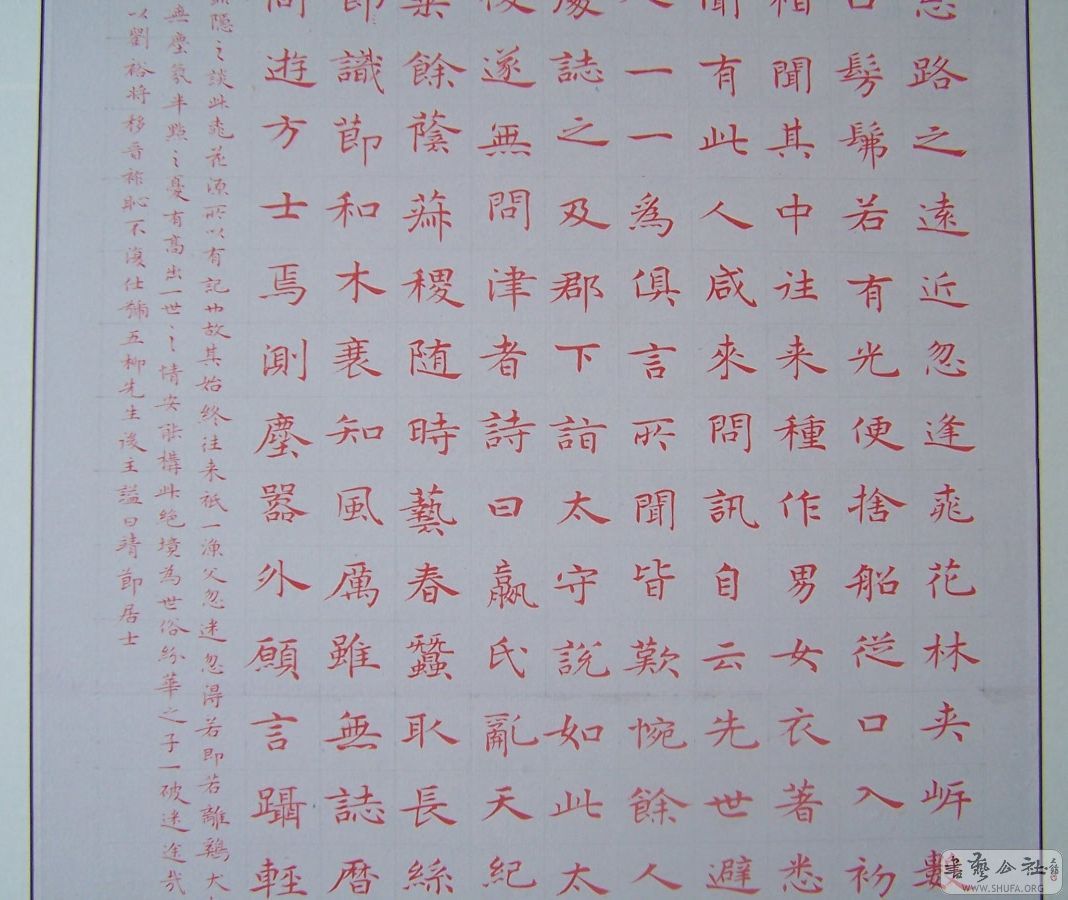 忘路之遠近忽逢桃花林夾岸數
口髣髴若有光便捨船從口入初
相聞其中往来種作男女衣著悉
聞有此人咸來問訊自云先世避
人一一為俱言所聞皆歎惋餘人
處誌之及郡下詣太守說如此太
後遂無問津者詩曰嬴氏亂天紀
餘蔭菽稷随時藝春蠶取長絲
識節和木衰知風厲雖無誌暦
問遊方士焉測塵囂外願言躡輕
隱之談此桃花源所以有記也故其始終往来祇一漁父忽迷忽得若即若離鷄犬
無塵氛半點之憂有高出一世之情安能構此絕境為世俗紛華之子一破迷途哉
以劉裕將移晉祚恥不復仕號五柳先生後王謚曰靖節居士
書藝公社
WWW.SHUFA.ORG